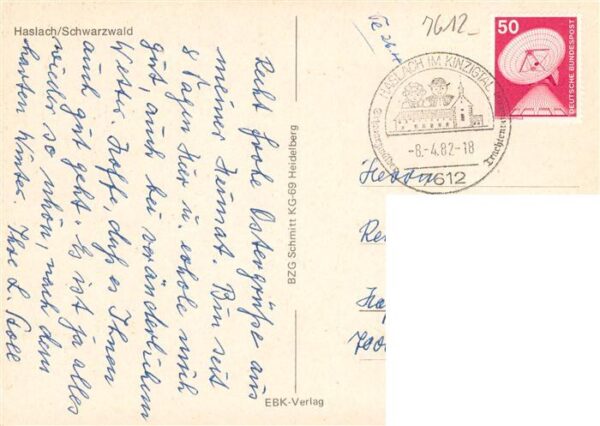 Haslach/Schwarzwald
Recht frohe Ostergrüße aus
meiner Heimat. Bin seit
8 Tagen hier u. erhole mich
gut, auch bei veränderlichem
Wetter. Hoffe, daß es Ihnen
auch gut geht. Es ist ja alles
wieder so schön, nach dem
harten Winter. Ihre L.
BZG Schmitt KG-69 Heidelberg
EBK-Verlag
7612
50
DEUTSCHE BUNDESPOST
HASLACH IM KINZIGTAL
-8.-4.82-18
7612
Herrn